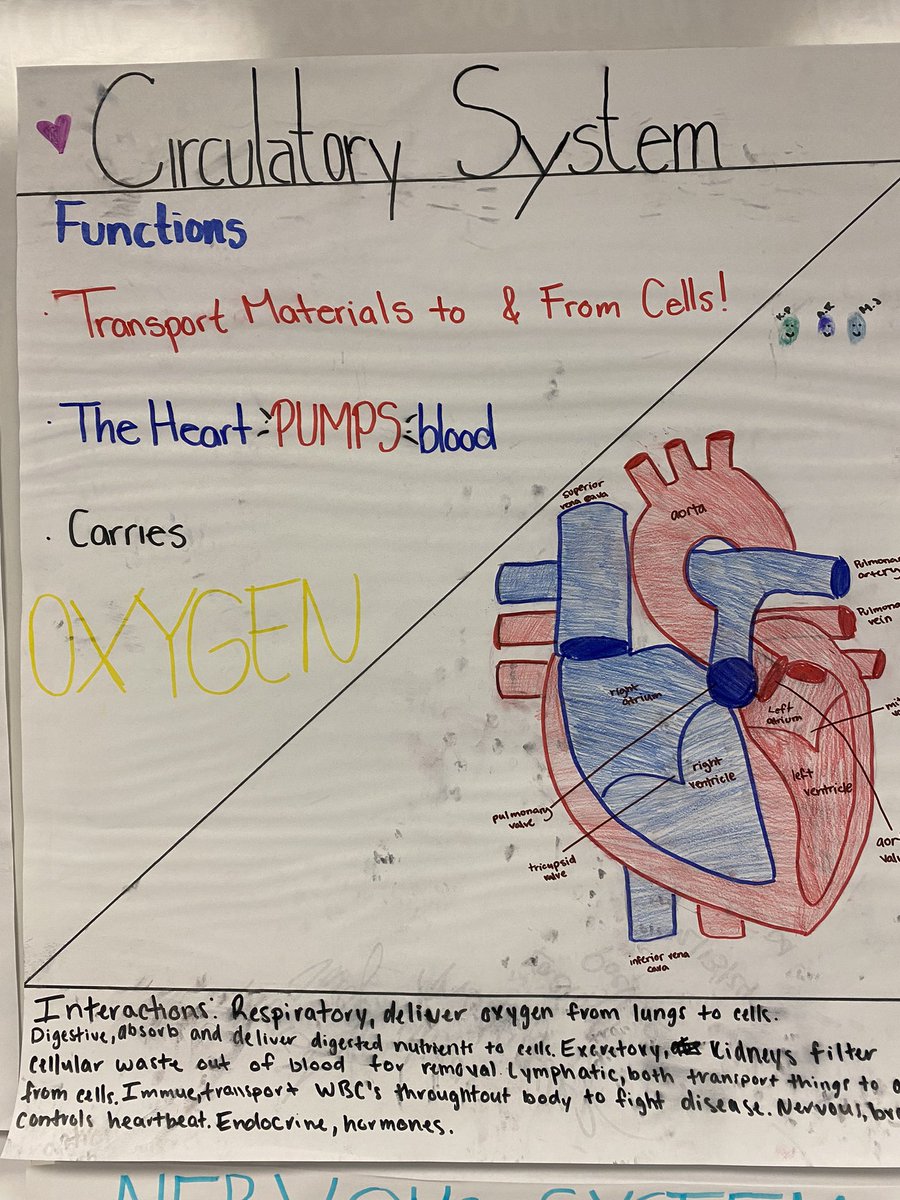 Circulatory System
Functions
· Transport Materials to & From Cells!
· The Heart PUMPS blood
· Carries
OXYGEN
K.A A.K M.J
superior
vena cava
aorta
Pulmona
artery
Pulmona
vein
right
atrium
Left
atrium
mit
right
ventricle
left
ventricle
pulmonary
valve
tricupsid
valve
aor
valv
inferior vena
cava
Interactions: Respiratory, deliver oxygen from lungs to cells.
Digestive, absorb and deliver digested nutrients to cells. Excretory, Kidneys filter
cellular waste out of blood for removal. Lymphatic, both transport things to a
from cells. Immue, transport WBC's throughtout body to fight disease. Nervous, bra
controls heartbeat. Endocrine, hormones.
NERVOUS SYSTEM